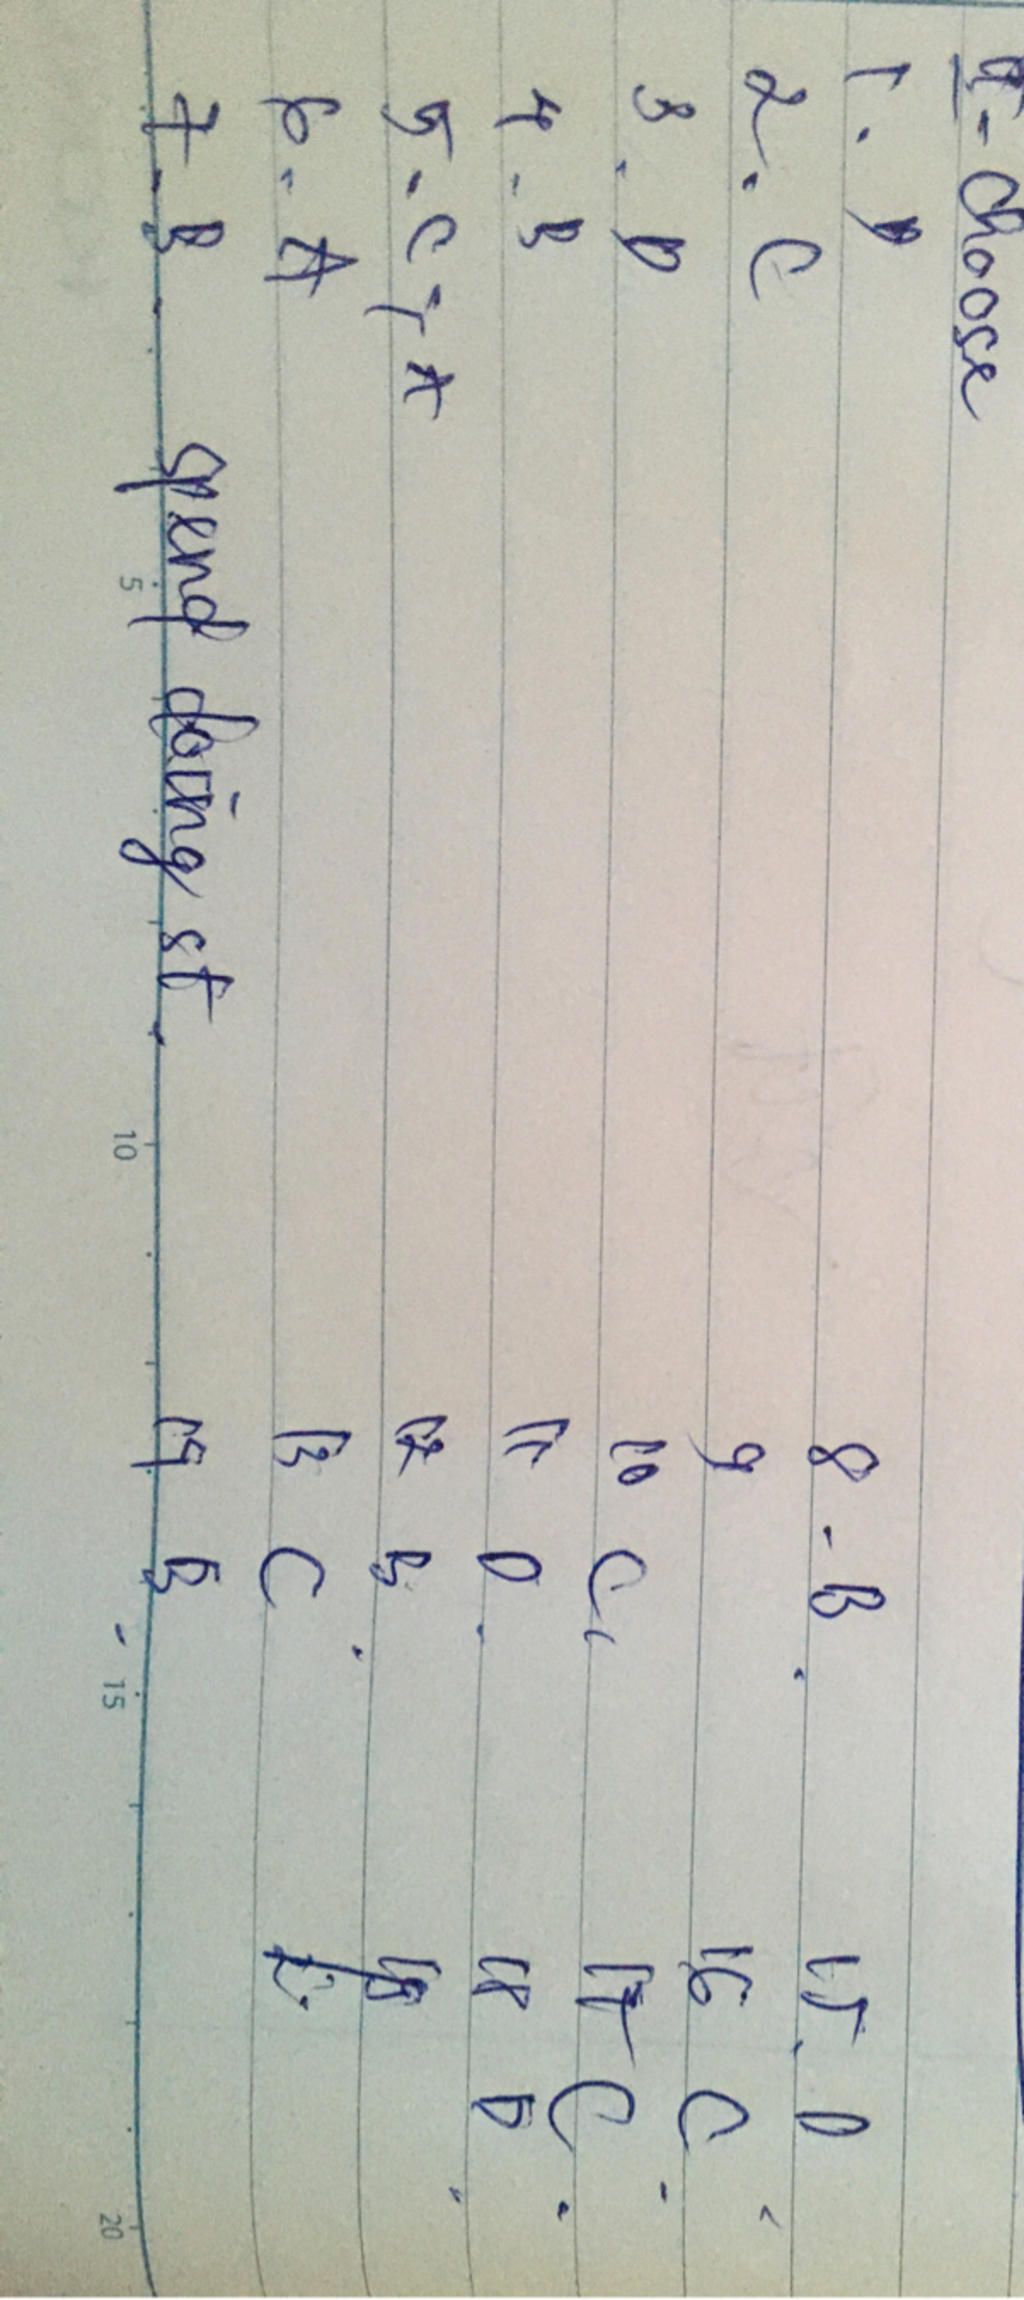 II - Choose
1. D 8 - B. 15. D
2. C 9 16 C
3. D 10 C, 17 C.
4. B 11 D. 18 D.
5. C, A 12 B.
6. A 13 C
7. B. spend doing st. 14 B
5 10 15 20